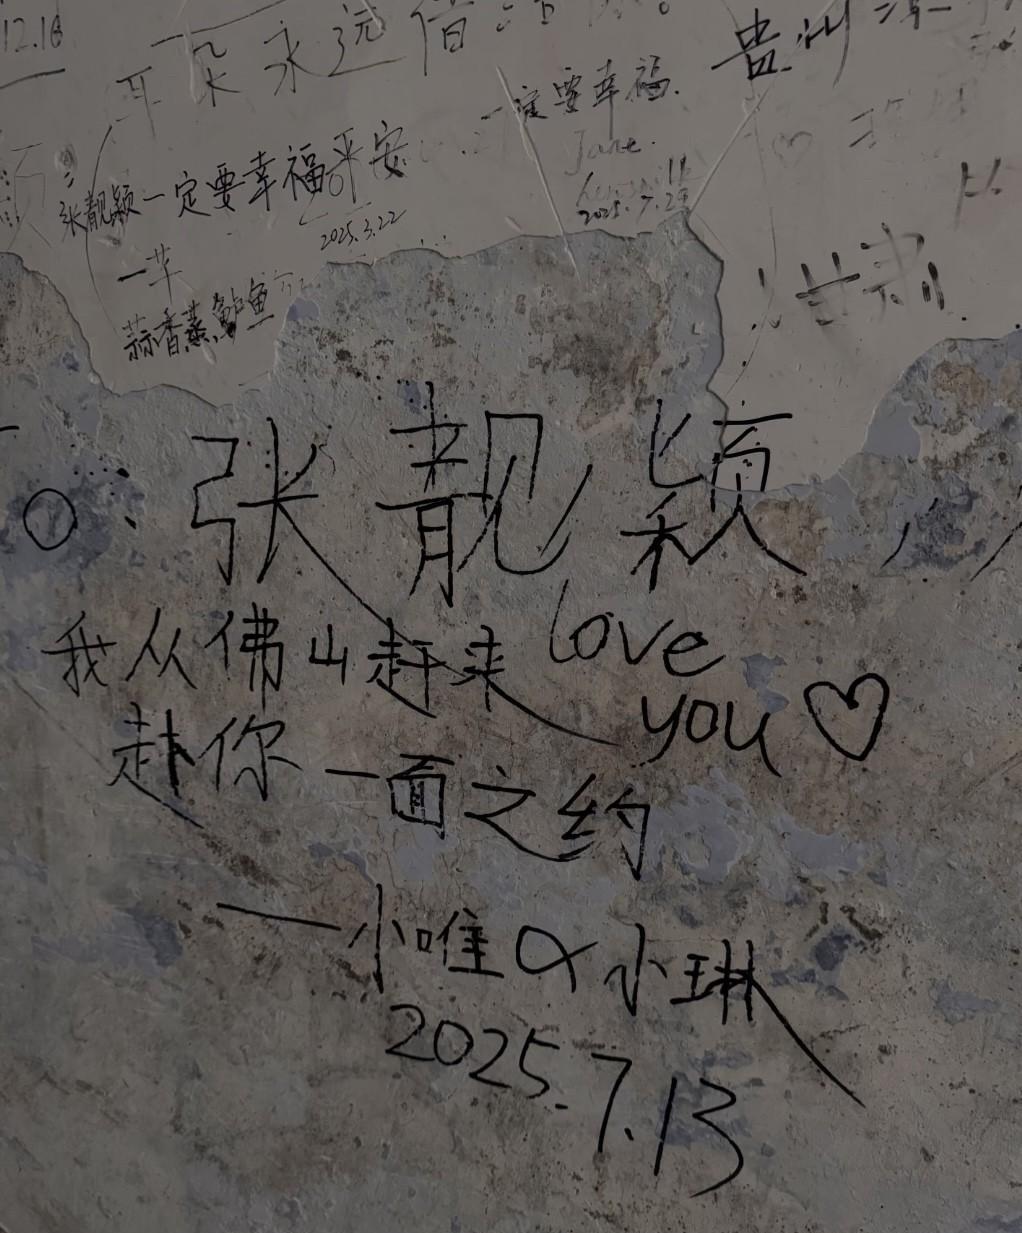 12.18
耳朵永远信
贵州
一定要幸福.
Jane.
2025.7.29
张靓颖一定要幸福平安
2025.3.22
一芊
蒜香蒸鲈鱼
甘肃
o: 张靓颖
我从佛山赶来
love you ♡
赴你一面之约
——小唯 & 小琳
2025.7.13